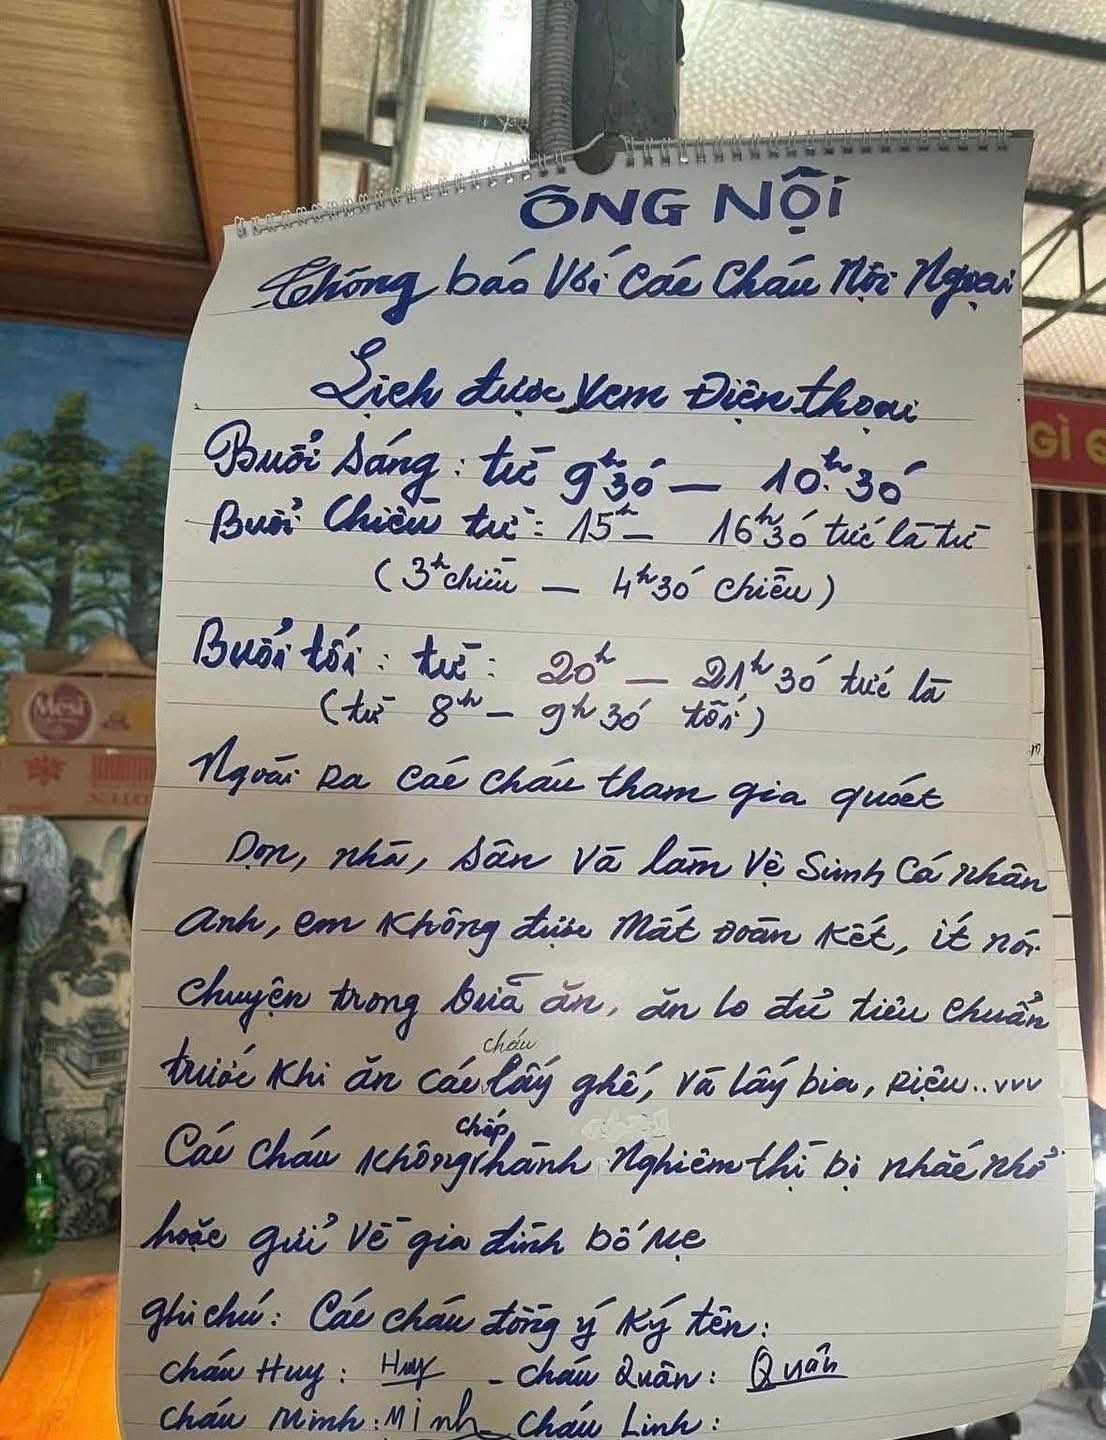 ÔNG NỘI
Thông báo Với các cháu Nội Ngoại
Lịch được xem Điện thoại
Buổi sáng: từ 9h30 — 10h.30
Buổi Chiều từ: 15h — 16h30 tức là từ
(3h chiều — 4h30 chiều)
Buổi tối: từ: 20h — 21h30 tức là
(từ 8h — 9h30 tối)
Ngoài ra các cháu tham gia quét
Dọn, nhà, sân và làm vệ sinh cá nhân
anh, em không được mất đoàn kết, ít nói
chuyện trong bữa ăn, ăn lo đủ tiêu chuẩn
trước khi ăn các cháu lấy ghế, và lấy bia, riệu..vvv
Các cháu không chấp hành nghiêm thì bị nhắc nhở
hoặc gửi về gia đình bố mẹ
ghi chú: Các cháu đồng ý ký tên:
cháu Huy: Huy - cháu Quân: Quân
cháu Minh: Minh cháu Linh:
GÌ
Mesi